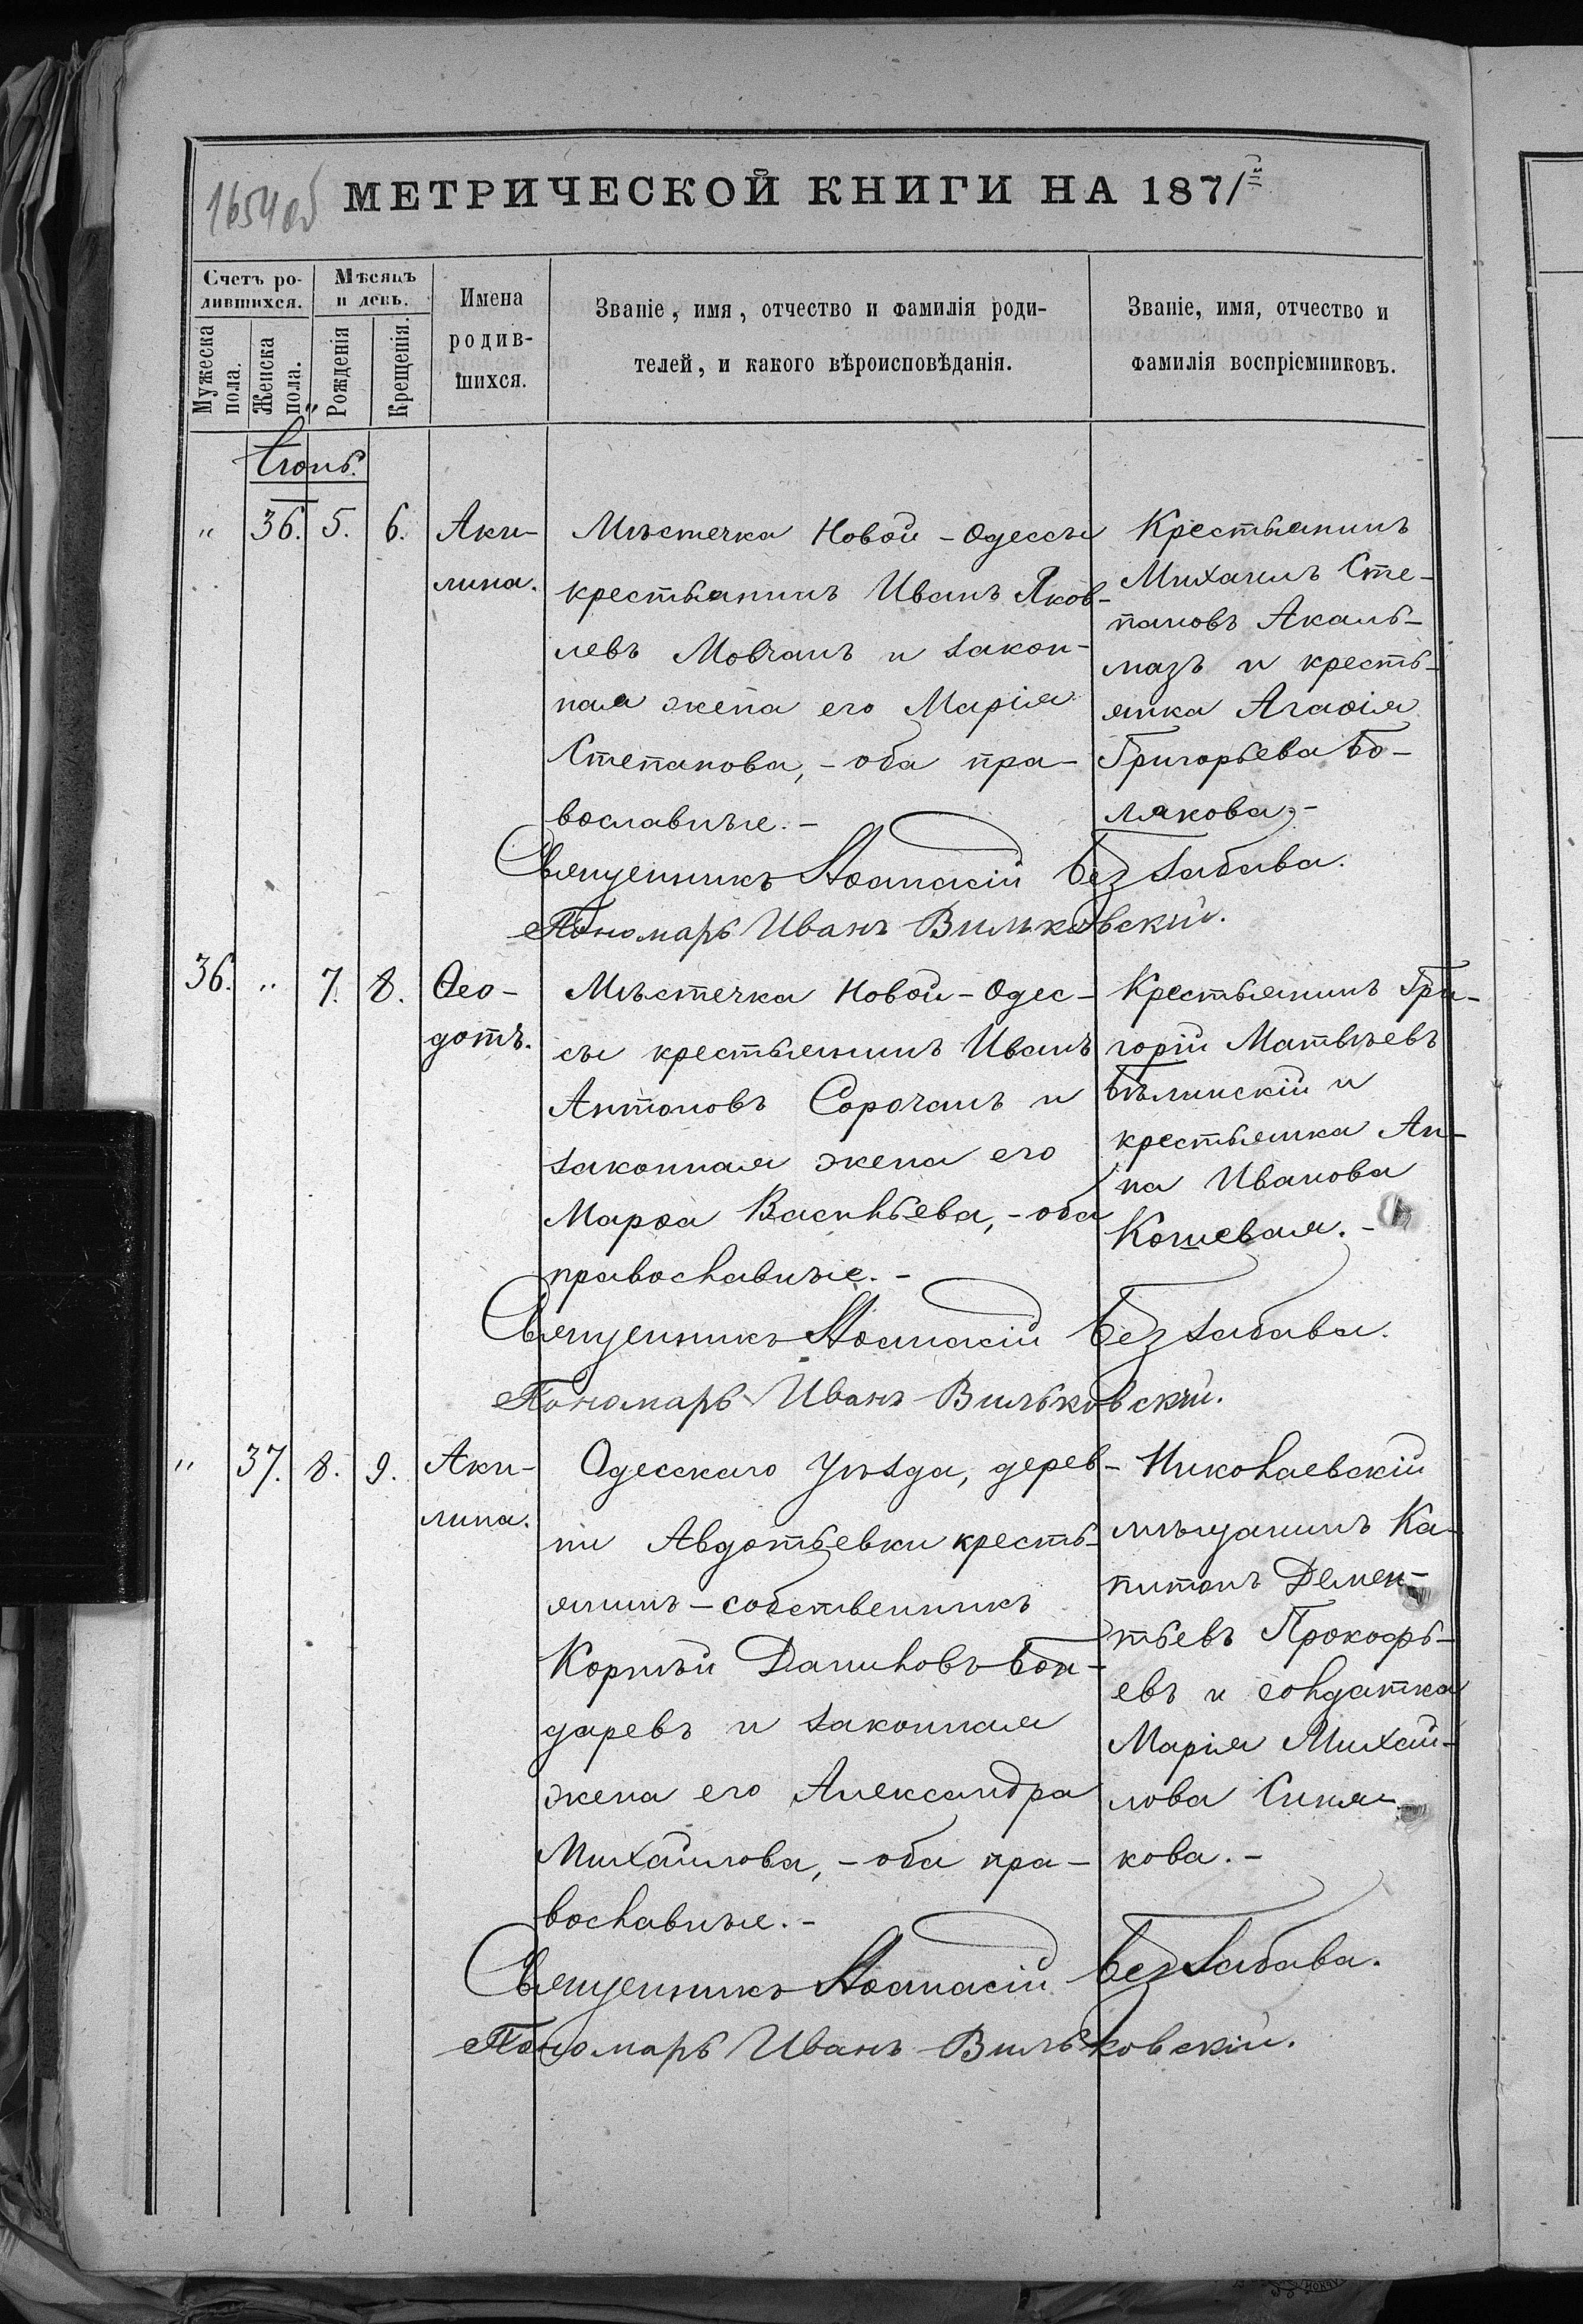 1654об
МЕТРИЧЕСКОЙ КНИГИ НА 1871й
Счетъ ро-
дившихся.
Мѣсяцъ
и день.
Имена
родив-
шихся.
Званіе, имя, отчество и фамилія роди-
телей, и какого вѣроисповѣданія.
Званіе, имя, отчество и
фамилія воспріемниковъ.
Мужеска
пола.
Женска
пола.
Рожденія
Крещенія.
Іюнь.
" 36. 5. 6.
Аки-
лина.
Мѣстечка Новой-Одессы
крестьянинъ Иванъ Яков-
левъ Мовчанъ и закон-
ная жена его Марія
Степанова,- оба пра-
вославные.-
Крестьянинъ
Михаилъ Сте-
пановъ Акаль-
мазъ и кресть-
янка Агаѳія
Григорьева Бо-
лякова,-
Священникъ Аѳанасій Беззабава.
Пономарь Иванъ Вильковскій.
36. " 7. 8.
Ѳео-
дотъ.
Мѣстечка Новой-Одес-
сы крестьянинъ Иванъ
Антоновъ Сорочанъ и
законная жена его
Марѳа Васильева,- оба
православные.-
Крестьянинъ Гри-
горій Матвѣевъ
Бѣлинскій и
крестьянка Ан-
на Иванова
Кошевая.-
Священникъ Аѳанасій Беззабава.
Пономарь Иванъ Вильковскій.
" 37. 8. 9.
Аки-
лина.
Одесскаго уѣзда, дерев-
ни Авдотьевки кресть-
янинъ-собственникъ
Корнѣй Даниловъ Бон-
даревъ и законная
жена его Александра
Михайлова,- оба пра-
вославные.-
Николаевскій
мѣщанинъ Ка-
питонъ Демен-
тьевъ Прокофь-
евъ и солдатка
Марія Михай-
лова Синя-
кова.-
Священникъ Аѳанасій Беззабава.
Пономарь Иванъ Вильковскій.